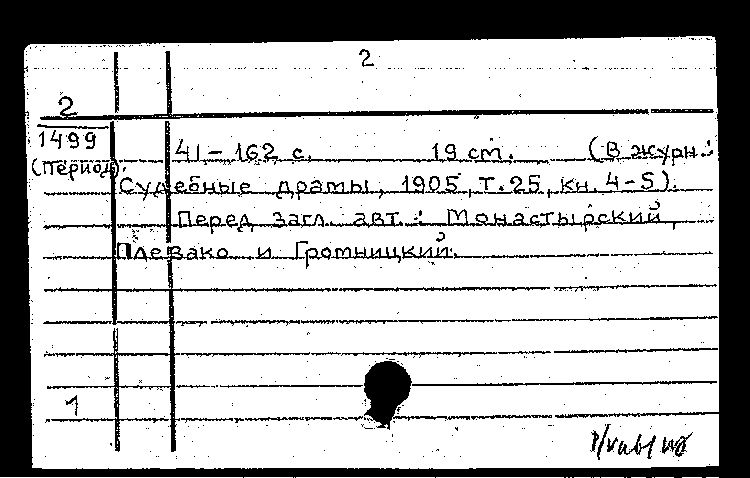 2
2
1499
(период).
41-162 с. 19 см. (В журн.:
Судебные драмы, 1905, т.25, кн. 4-5).
Перед загл. авт.: Монастырский,
Плевако и Громницкий.
1